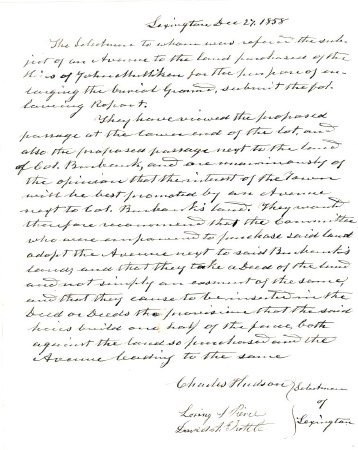 Lexington Dec 27, 1858
The Selectmen to whom was refered the sub-
ject of an Avenue to the land purchased of the
heirs of John Mulliken for the purpose of en-
larging the Burial Ground, submit the fol-
lowing Report.
They have viewed the proposed
passage at the lower end of the lot and
also the proposed passage next to the land
of Col. Burbank, and are unanimously of
the opinion that the interest of the town
will be best promoted by an Avenue
next to Col. Burbank's land. They would
therefore recommend that the Committee
who were empowered to purchase said land
adopt the Avenue next to said Burbank's
land, and that they take a Deed of the land
and not simply an easment of the same,
and that they cause to be inserted in the
Deed or Deeds the provision that the said
heirs build one half of the fence both
against the land so purchased and the
Avenue leading to the same
Charles Hudson
Loring S Pierce
Selectmen
of
Lexington